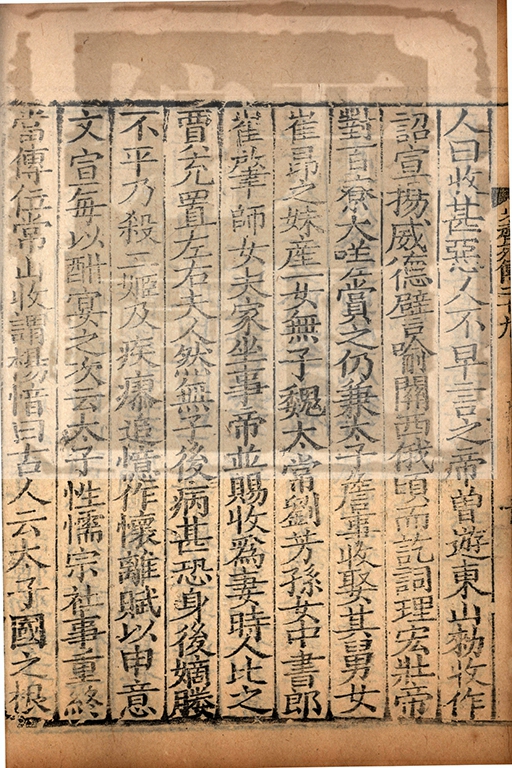 人曰收甚惡人不早言之帝曾遊東山勑收作
詔宣揚威德譬喻關西俄頃而訖詞理宏壯帝
對百寮大嗟賞之仍兼太子詹事收娶其舅女
崔昻之妹産一女無子魏太常劉芳孫女中書郎
崔肈師女夫家坐事帝並賜收爲妻時人比之
賈充置左右夫人然無子後病甚恐身後嫡媵
不平乃殺二姬及疾瘳追憶作懷離賦以申意
文宣每以酣宴之次云太子性懦宗社事重終
當傳位常山收謂楊愔曰古人云太子國之根